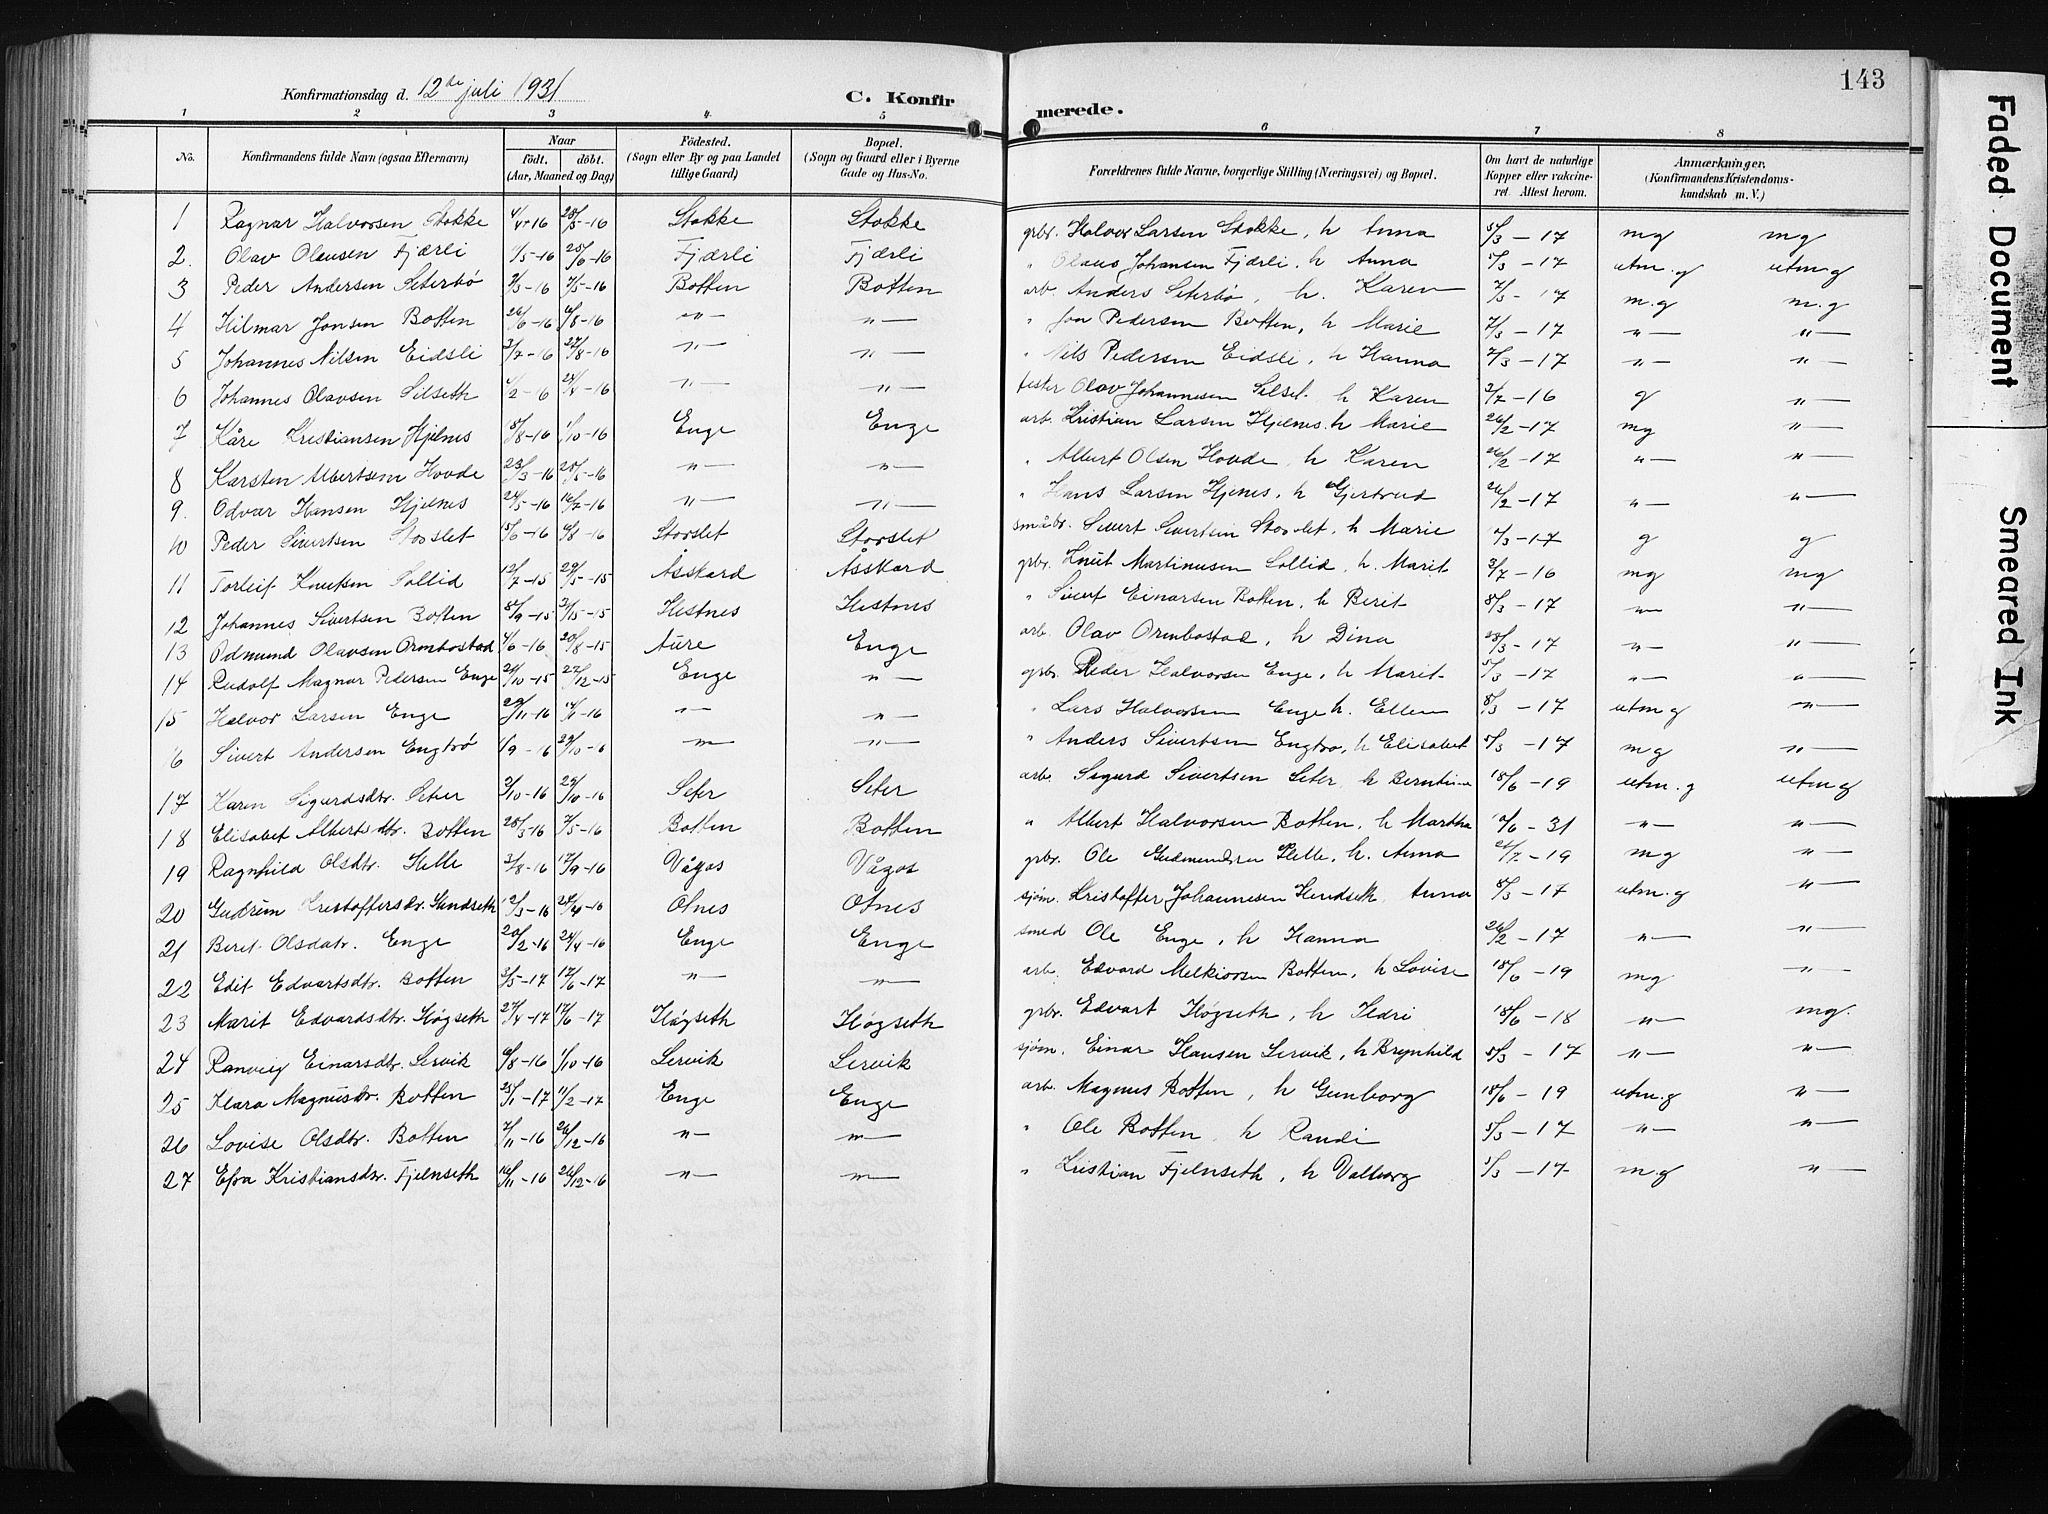 143
Konfirmationsdag d. 12te juli 1931
C. Konfirmerede.
1 2 3 4 5 6 7 8
No. Konfirmandens fulde Navn (ogsaa Efternavn) Naar födt. döbt. (Aar, Maaned og Dag) Födested. (Sogn eller By og paa Landet tillige Gaard) Bopæl. (Sogn og Gaard eller i Byerne Gade og Hus-No. Forældrenes fulde Navne, borgerlige Stilling (Næringsvei) og Bopæl. Om havt de naturlige Kopper eller vakcineret. Attest herom. Anmærkninger. (Konfirmandens Kristendomskundskab m. V.)
1 Ragnar Halvorsen Stokke 4/4-16 28/5-16 Stokke Stokke grbr. Halvor Larsen Stokke, h Anna 5/3-17 mg mg
2. Olav Olausen Fjærli /5-16 25/6-16 Fjærli Fjærli " Olaus Johansen Fjærli, h Anna 5/3-17 utm.g utm g
3 Peder Andersen Seterbö 3/3-16 7/5-16 Botten Botten arb. Anders Seterbö, h. Karen 7/3-17 m.g m.g
4 Hilmar Jonsen Botten 26/6-16 6/8-16 " " " Jon Pedersen Botten, h Marie 7/3-17 " "
5 Johannes Nilsen Eidsli 3/7-16 27/8-16 " " " Nils Pedersen Eidsli, h Hanna 7/3-17 " "
6 Johannes Olavsen Silseth 1/2-6 24/4-16 " " fisker Olav Johannesen Silset. h Karen 3/7-16 g "
7 Kåre Kristiansen Hjelnes 5/8-16 1/10-16 Enge Enge arb. Kristian Larsen Hjelnes. h Marie 26/2-17 mg "
8 Karsten Albertsen Hovde 23/3-16 28/5-16 " " " Albert Olsen Hovde, h Karen 26/2-17 " "
9. Odvar Hansen Hjelnes 24/5-16 16/7-16 " " " Hans Larsen Hjenes, h Gjertrud 26/2-17 " "
10 Peder Sivertsen Storslet 15/6-16 6/8-16 Storslet Storslet småbr. Sivert Sivertsen Storslet, h Marie 7/3-17 g g
11 Torleif Knutsen Sollid 12/7-15 29/5-15 Åsskard Åsskard grbr. Knut Martinusen Sollid, h. Marit 3/7-16 mg mg
12 Johannes Sivertsen Botten 8/9-15 31/15-15 Hestnes Hestnes " Sivert Einarsen Botten, h Berit 8/3-17 " "
13 Odmund Olavsen Ormbostad 4/6-16 20/8-15 Aure Enge arb. Olav Ormbostad, h Dina 28/3-17 " "
14 Rudolf Magnar Pedersen Enge 24/10-15 27/12-15 Enge " grbr. Peder Halvorsen Enge, h Marit 5/3-17 " "
15 Halvor Larsen Enge 29/11-16 14/11-16 " " " Lars Halvorsen Enge h. Ellen 8/3-17 utm g "
6 Sivert Andersen Engtrö 1/9-16 29/10-6 " " " Anders Sivertsen Engtrö, h Elisabet 5/3-17 mg "
17 Karen Sigurdsdtr. Seter 3/10-16 29/10-16 Seter Seter arb Sigurd Sivertsen Seter, h Berntine 18/6-19 utm. g utm g
18 Elisabet Albertsdtr. Botten 28/3-16 7/5-16 Botten Botten " Albert Halvorsen Botten, h Martha 10/6-31 " "
19 Ragnhild Olsdtr. Helle 3/8-16 17/9-16 Vågos Vågos grbr. Ole Gudmundsen Helle, h. Anna 21/7-19 mg "
20 Gudrun Kristoffersdr. Hendseth 12/3-16 24/4-16 Otnes Otnes sjöm. Kristoffer Johannesen Hendseth Anna 8/3-17 utm. g "
21 Berit Olsdatr. Enge 20/2-16 24/4-16 Enge Enge smed Ole Enge, h Hanna 26/2-17 " "
22 Edit Edvartsdtr. Botten 3/5-17 17/6-17 " " arb. Edvard Melkiorsen Botten, h Lovise 18/6-19 mg "
23 Marit Edvardsdtr. Högseth 27/4-17 17/6-17 Högseth Högseth grbr. Edvart Högseth, h Kari 18/6-18 " mg.
24 Ranveig Einarsdtr. Lervik 6/8-16 1/10-16 Lervik Lervik sjöm. Einar Hansen Lervik, h Brynhild 5/3-17 " "
25 Klara Magnusdtr. Botten 25/1-17 11/2-17 Enge Enge arb. Magnus Botten, h Gunborg 18/6-19 utm.g "
26 Lovise Olsdtr. Botten 7/11-16 26/12-16 " " " Ole Botten, h Randi 5/3-17 " "
27 Esra Kristiansdtr. Fjelnseth 16/11-16 26/12-16 " " " Kristian Fjelnseth, h Valborg 5/3-17 m.g "
Faded Document
Smeared Ink